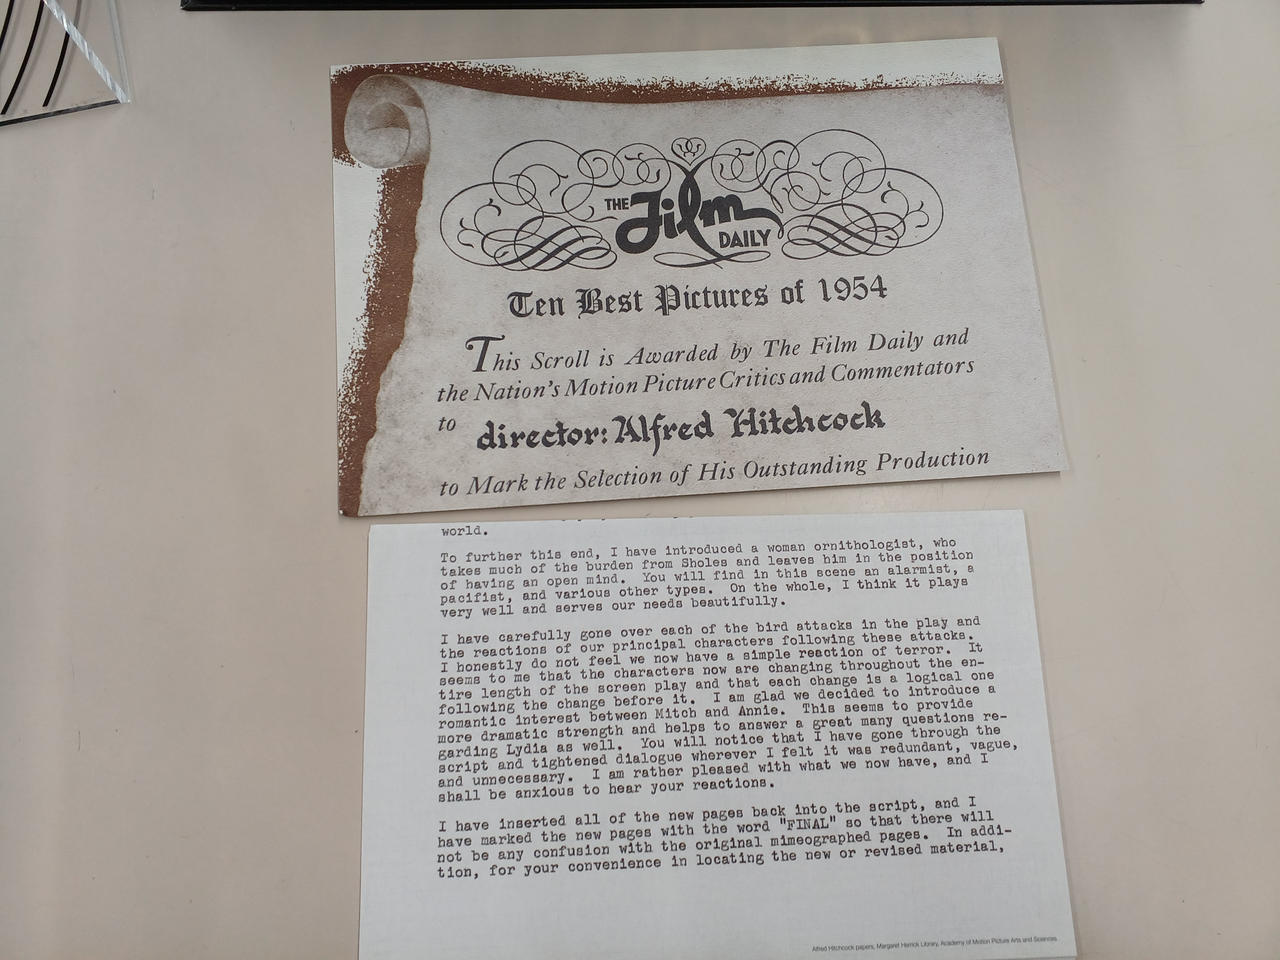 THE Film DAILY
Ten Best Pictures of 1954
This Scroll is Awarded by The Film Daily and
the Nation's Motion Picture Critics and Commentators
to director: Alfred Hitchcock
to Mark the Selection of His Outstanding Production
world.
To further this end, I have introduced a woman ornithologist, who
takes much of the burden from Sholes and leaves him in the position
of having an open mind. You will find in this scene an alarmist, a
pacifist, and various other types. On the whole, I think it plays
very well and serves our needs beautifully.
I have carefully gone over each of the bird attacks in the play and
the reactions of our principal characters following these attacks.
I honestly do not feel we now have a simple reaction of terror. It
seems to me that the characters now are changing throughout the en-
tire length of the screen play and that each change is a logical one
following the change before it. I am glad we decided to introduce a
romantic interest between Mitch and Annie. This seems to provide
more dramatic strength and helps to answer a great many questions re-
garding Lydia as well. You will notice that I have gone through the
script and tightened dialogue wherever I felt it was redundant, vague,
and unnecessary. I am rather pleased with what we now have, and I
shall be anxious to hear your reactions.
I have inserted all of the new pages back into the script, and I
have marked the new pages with the word "FINAL" so that there will
not be any confusion with the original mimeographed pages. In addi-
tion, for your convenience in locating the new or revised material,
Alfred Hitchcock papers, Margaret Herrick Library, Academy of Motion Picture Arts and Sciences